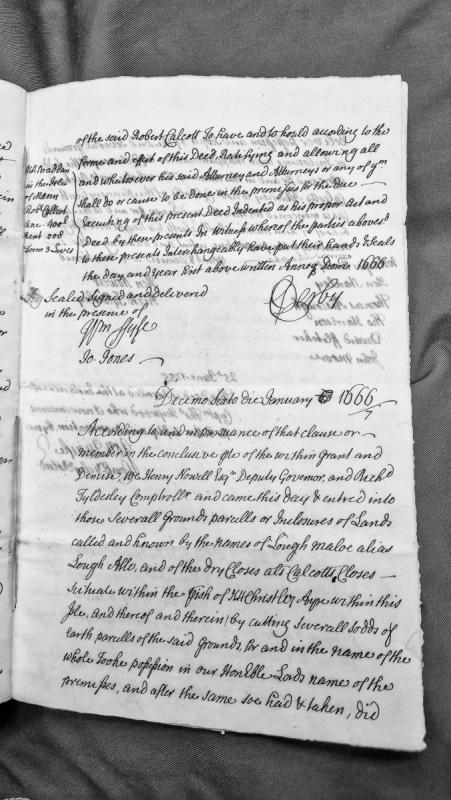 of the said Robert Calcott To have and to hould according to the
forme and effect of this Deed, Ratifying and allowing all
and whatsoever his said Attorney and Attorneys or any of ym
shall do or cause to be done in the premisses to the due
Executing of this present Deed Indented as his proper Act and
Deed by these presents In Witness whereof the parties abovesd
to these presents Interchangeably have put their hands & Seals
the day and year first above written Annoq Domi 1666
in the Isle
of Mann
Robt Calcott
Fine 400l
Rent 008
Term 3 Lives
Sealed Signed and Delivered
in the presence of
Derby
Wm
Jo. Jones
Decimo Sexto die January 1666/7
According to and in pursuance of that clause or
member in the conclusive of the within Grant and
Demise We Henry Nowell Esqr Deputy Govemor, and Richd
Tyldesley Comptrollr and came this day & entred into
those Severall Grounds parcells or Inclosures of Lands
called and known by the names of Lough maloe alias
Lough Allo, and of the dry Closes als Calcotts Closes
scituate within the pish of Kk Christ Ley Ayre within this
Isle, and thereof and therein (by cutting severall sodds of
Earth parcells of the said Grounds, for and in the name of the
whole Tooke possession in our Honble Lords name of the
premisses, and after the same soe had & taken, did